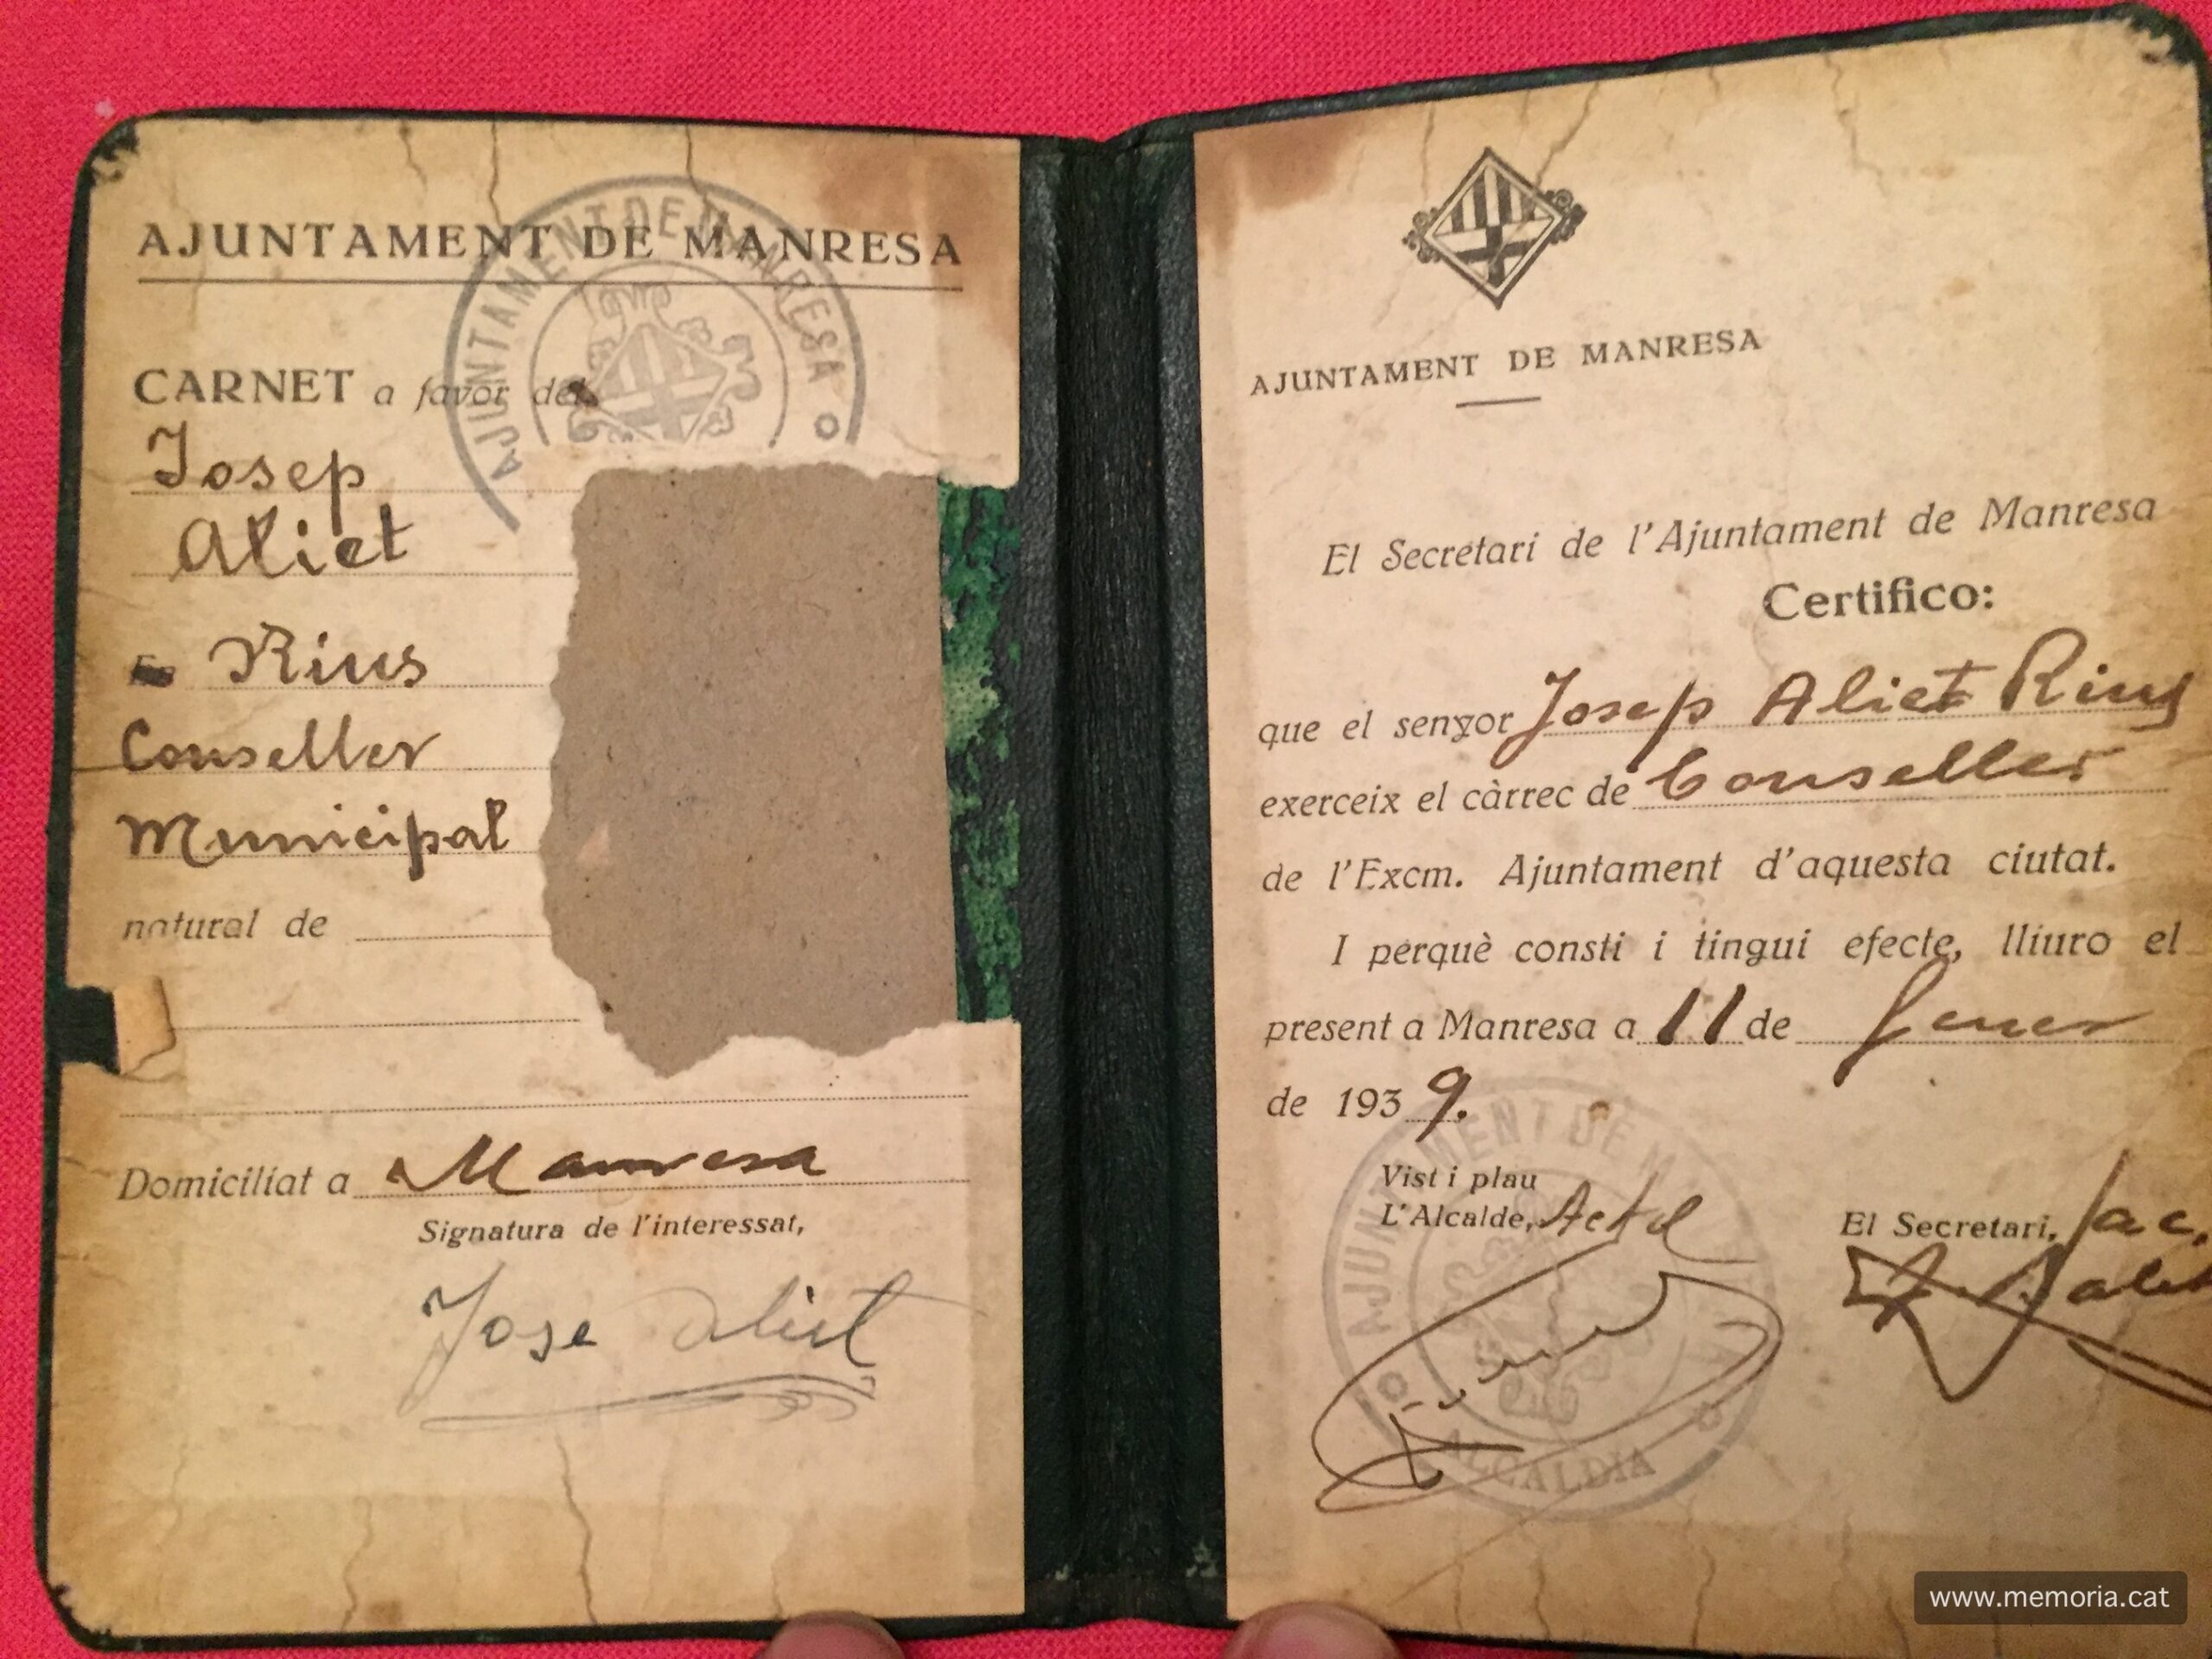 AJUNTAMENT DE MANRESA
AJUNTAMENT DE MANRESA
CARNET a favor de
Josep
Aliet
Rius
Conseller
Municipal
natural de
Domiciliat a Manresa
Signatura de l'interessat,
Jose Aliet
AJUNTAMENT DE MANRESA
El Secretari de l'Ajuntament de Manresa
Certifico:
que el senyor Josep Aliet Rius
exerceix el càrrec de Conseller
de l'Excm. Ajuntament d'aquesta ciutat.
I perquè consti i tingui efecte, lliuro el
present a Manresa a 11 de Gener
de 1939.
Vist i plau
L'Alcalde, Actal
El Secretari,
AJUNTAMENT DE MANRESA
ALCALDIA
www.memoria.cat